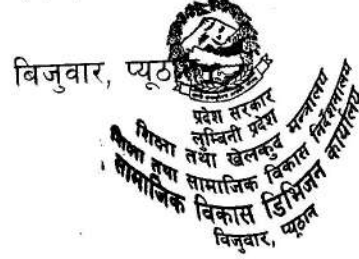 बिजुवार, प्यूठा
प्रदेश सरकार
लुम्बिनी प्रदेश
शिक्षा तथा खेलकुद मन्त्रालय
शिक्षा तथा सामाजिक विकास निर्देशनालय
सामाजिक विकास डिभिजन कार्यालय
विजुवार, प्यूठान